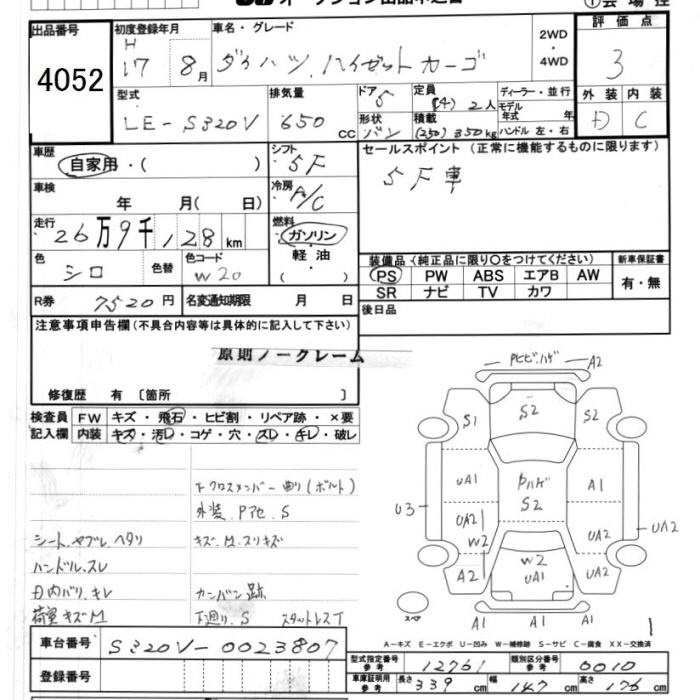 出品番号
4052
初度登録年月
H
17 8月
車名・グレード
ダイハツ ハイゼットカーゴ
2WD
・
4WD
評価点
3
型式
LE-S320V
排気量
650 cc
ドア
5
形状
バン
定員
(4) 2人
積載
(250) 350kg
ディーラー・並行
モデル年式 年
ハンドル 左・右
外装 内装
D C
車歴
自家用・( )
シフト
5F
セールスポイント(正常に機能するものに限ります)
5F車
車検
年 月( 日)
冷房
A/C
走行
26万9千128km
燃料
ガソリン
・
軽油
( )
色
シロ
色替
色コード
W20
装備品(純正品に限り〇をつけてください)
新車保証書
PS PW ABS エアB AW
SR ナビ TV カワ
有・無
R券 7520円
名変通知期限 月 日
後日品
注意事項申告欄(不具合内容等は具体的に記入して下さい)
原則ノークレーム
修復歴 有〔箇所 〕
検査員記入欄
FW キズ・飛石・ヒビ割・リペア跡・×要
内装 キズ・汚レ・コゲ・穴・スレ・キレ・破レ
下クロスメンバー曲り(ボルト)
外装、Pアセ、S
シート、ヤブレ、ヘタリ
キズ、M、スリキズ
ハンドル、スレ
D内バリ、キレ
カンバン跡
荷室キズM
下廻り、S スタットレスT
Pヒビ、ハゲ A2
S1 S2 S2
UA1 Pハゲ A1
S2
U3 UA2 W2 UA2 UA2
A2 W2 UA2
UA1
スペア
A1 A1 A1
1
A-キズ E-エクボ U-凹み W-補修跡 S-サビ C-腐食 XX-交換済
車台番号 S320V-0023807
登録番号
型式指定番号参考 12761
類別区分番号参考 0010
車庫証明用参考 長さ 339cm 幅 147cm 高さ 176cm